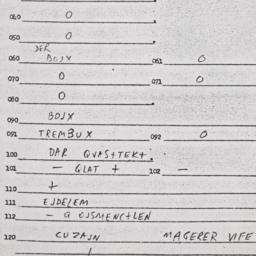 040 0
050 0
DER
060 BOJX 061 0
070 0 071 0
080 0
090 BOJX
091 TREMBUX 092 0
100 DAR QVASTEKT.
101 - GLAT + 102 -
110 +
111 EJDELEM
112 - G EJSMENCTLEN
120 CUZAJN MAGERER VIFE